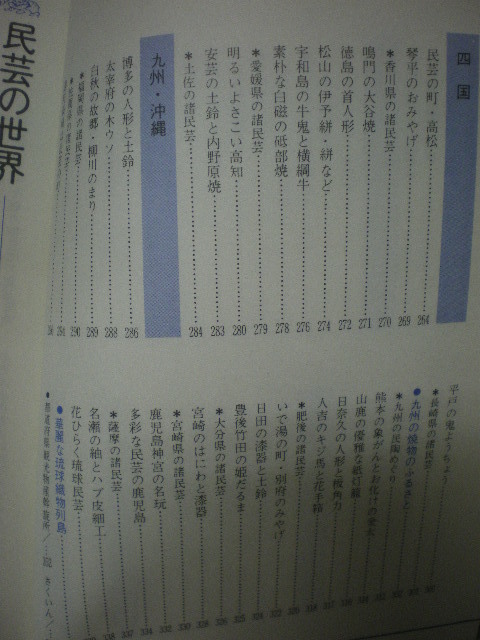 四国
民芸の町・高松 264
琴平のおみやげ 269
＊香川県の諸民芸 270
鳴門の大谷焼 271
徳島の首人形 272
松山の伊予絣・絣など 274
宇和島の牛鬼と横綱牛 276
素朴な白磁の砥部焼 278
＊愛媛県の諸民芸 279
明るいよさこい高知 280
安芸の土鈴と内野原焼 283
＊土佐の諸民芸 284
九州・沖縄
博多の人形と土鈴 286
太宰府の木ウソ 288
白秋の故郷・柳川のまり 289
＊福岡県の諸民芸 290
平戸の鬼ようちょう
＊長崎県の諸民芸
●九州の焼物のふるさと
＊九州の民陶めぐり
熊本の象がんとお化けの金太
山鹿の優雅な紙灯籠
日奈久の人形と板角力
人吉のキジ馬と花手箱
＊肥後の諸民芸
いで湯の町・別府のみやげ
日田の漆器と土鈴
豊後竹田の姫だるま
＊大分県の諸民芸
宮崎のはにわと漆器
＊宮崎県の諸民芸
鹿児島神宮の名玩
多彩な民芸の鹿児島
＊薩摩の諸民芸
名瀬の紬とハブ皮細工
花ひらく琉球民芸
●華麗な琉球織物列島
民芸の世界